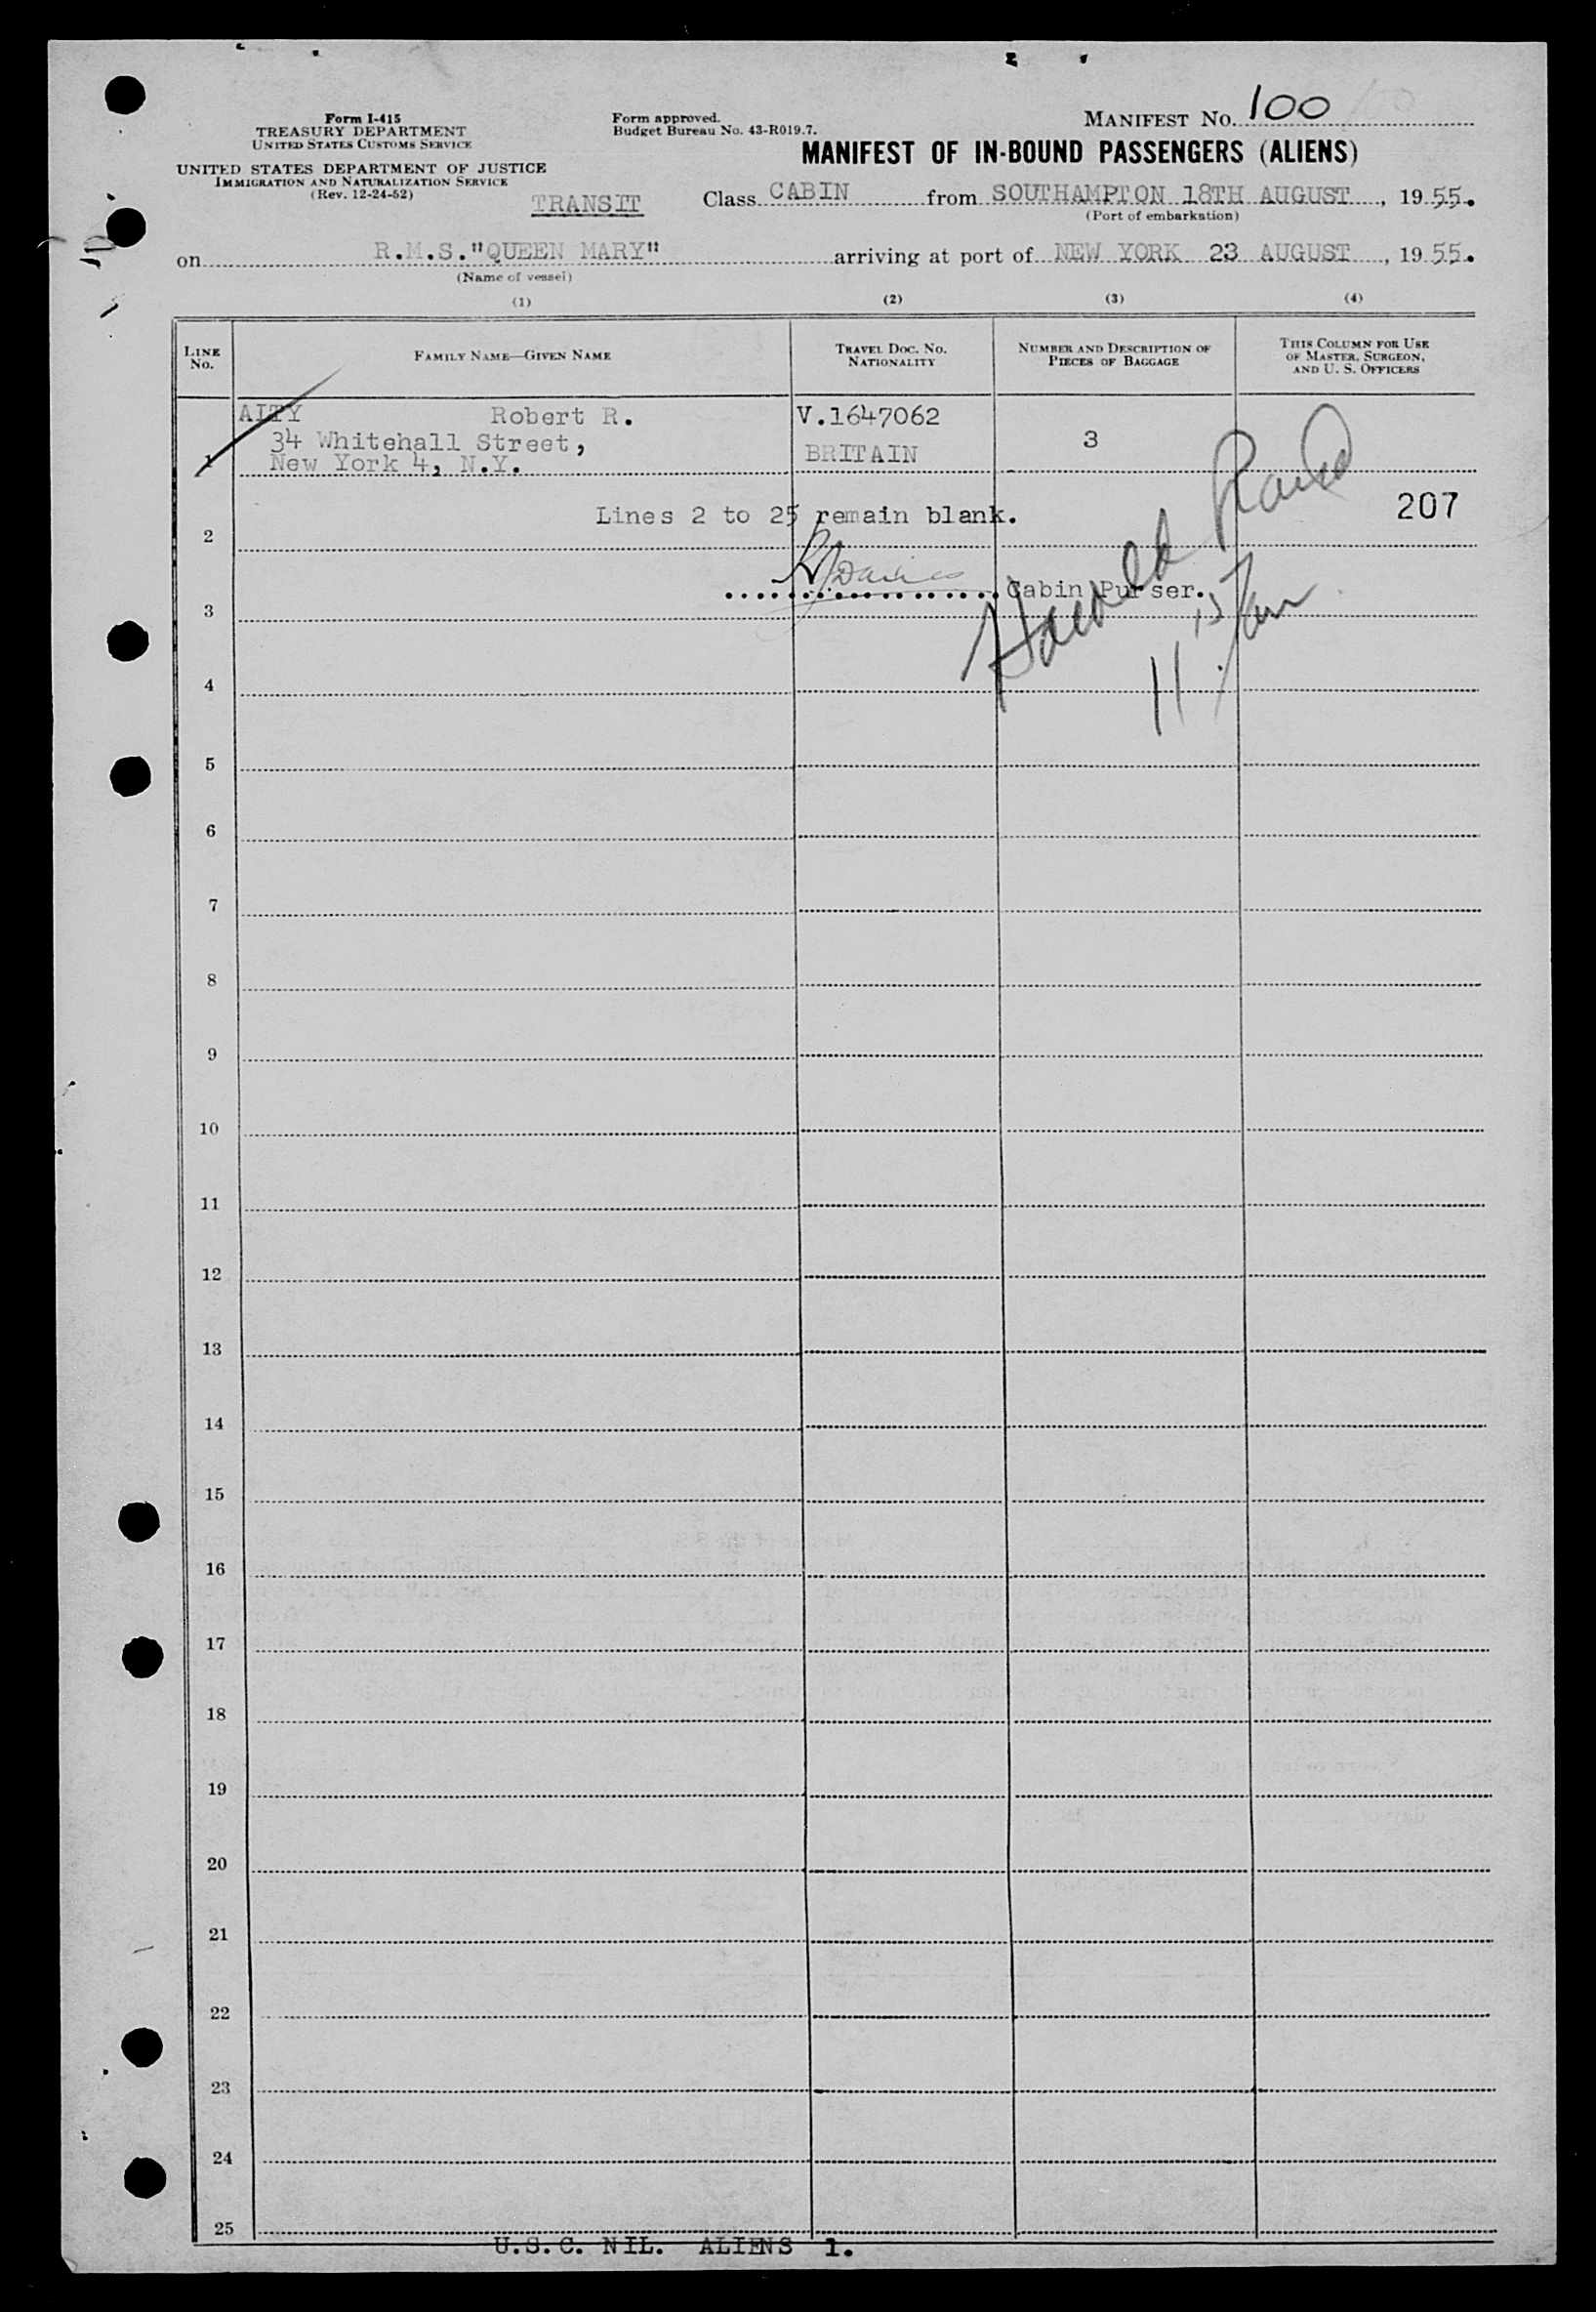 Form I-415
TREASURY DEPARTMENT
UNITED STATES CUSTOMS SERVICE
UNITED STATES DEPARTMENT OF JUSTICE
IMMIGRATION AND NATURALIZATION SERVICE
(Rev. 12-24-52)
Form approved.
Budget Bureau No. 43-R019.7.
MANIFEST NO. 100
MANIFEST OF IN-BOUND PASSENGERS (ALIENS)
TRANSIT Class CABIN from SOUTHAMPTON 18TH AUGUST, 1955.
(Port of embarkation)
on R.M.S."QUEEN MARY" arriving at port of NEW YORK 23 AUGUST, 1955.
(Name of vessel)
(1) (2) (3) (4)
LINE NO.
FAMILY NAME—GIVEN NAME
TRAVEL DOC. NO.
NATIONALITY
NUMBER AND DESCRIPTION OF
PIECES OF BAGGAGE
THIS COLUMN FOR USE
OF MASTER, SURGEON,
AND U. S. OFFICERS
AITY Robert R. V.1647062
34 Whitehall Street, 3
1 New York 4, N.Y. BRITAIN
Lines 2 to 25 remain blank. 207
2
Cabin Purser.
3
Harold
11
4
5
6
7
8
9
10
11
12
13
14
15
16
17
18
19
20
21
22
23
24
25
U.S.C. NIL. ALIENS 1.